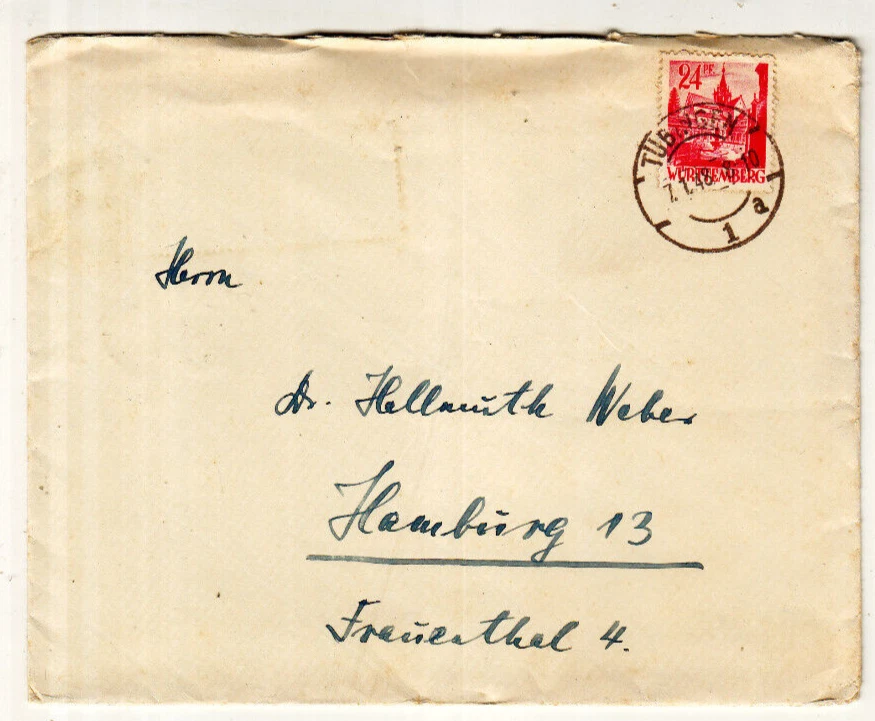 24 PF
WÜRTTEMBERG
TÜBINGEN
7.1.48 - 8-10
1 a
Herrn
Dr. Hellmuth Weber
Hamburg 13
Frauenthal 4.